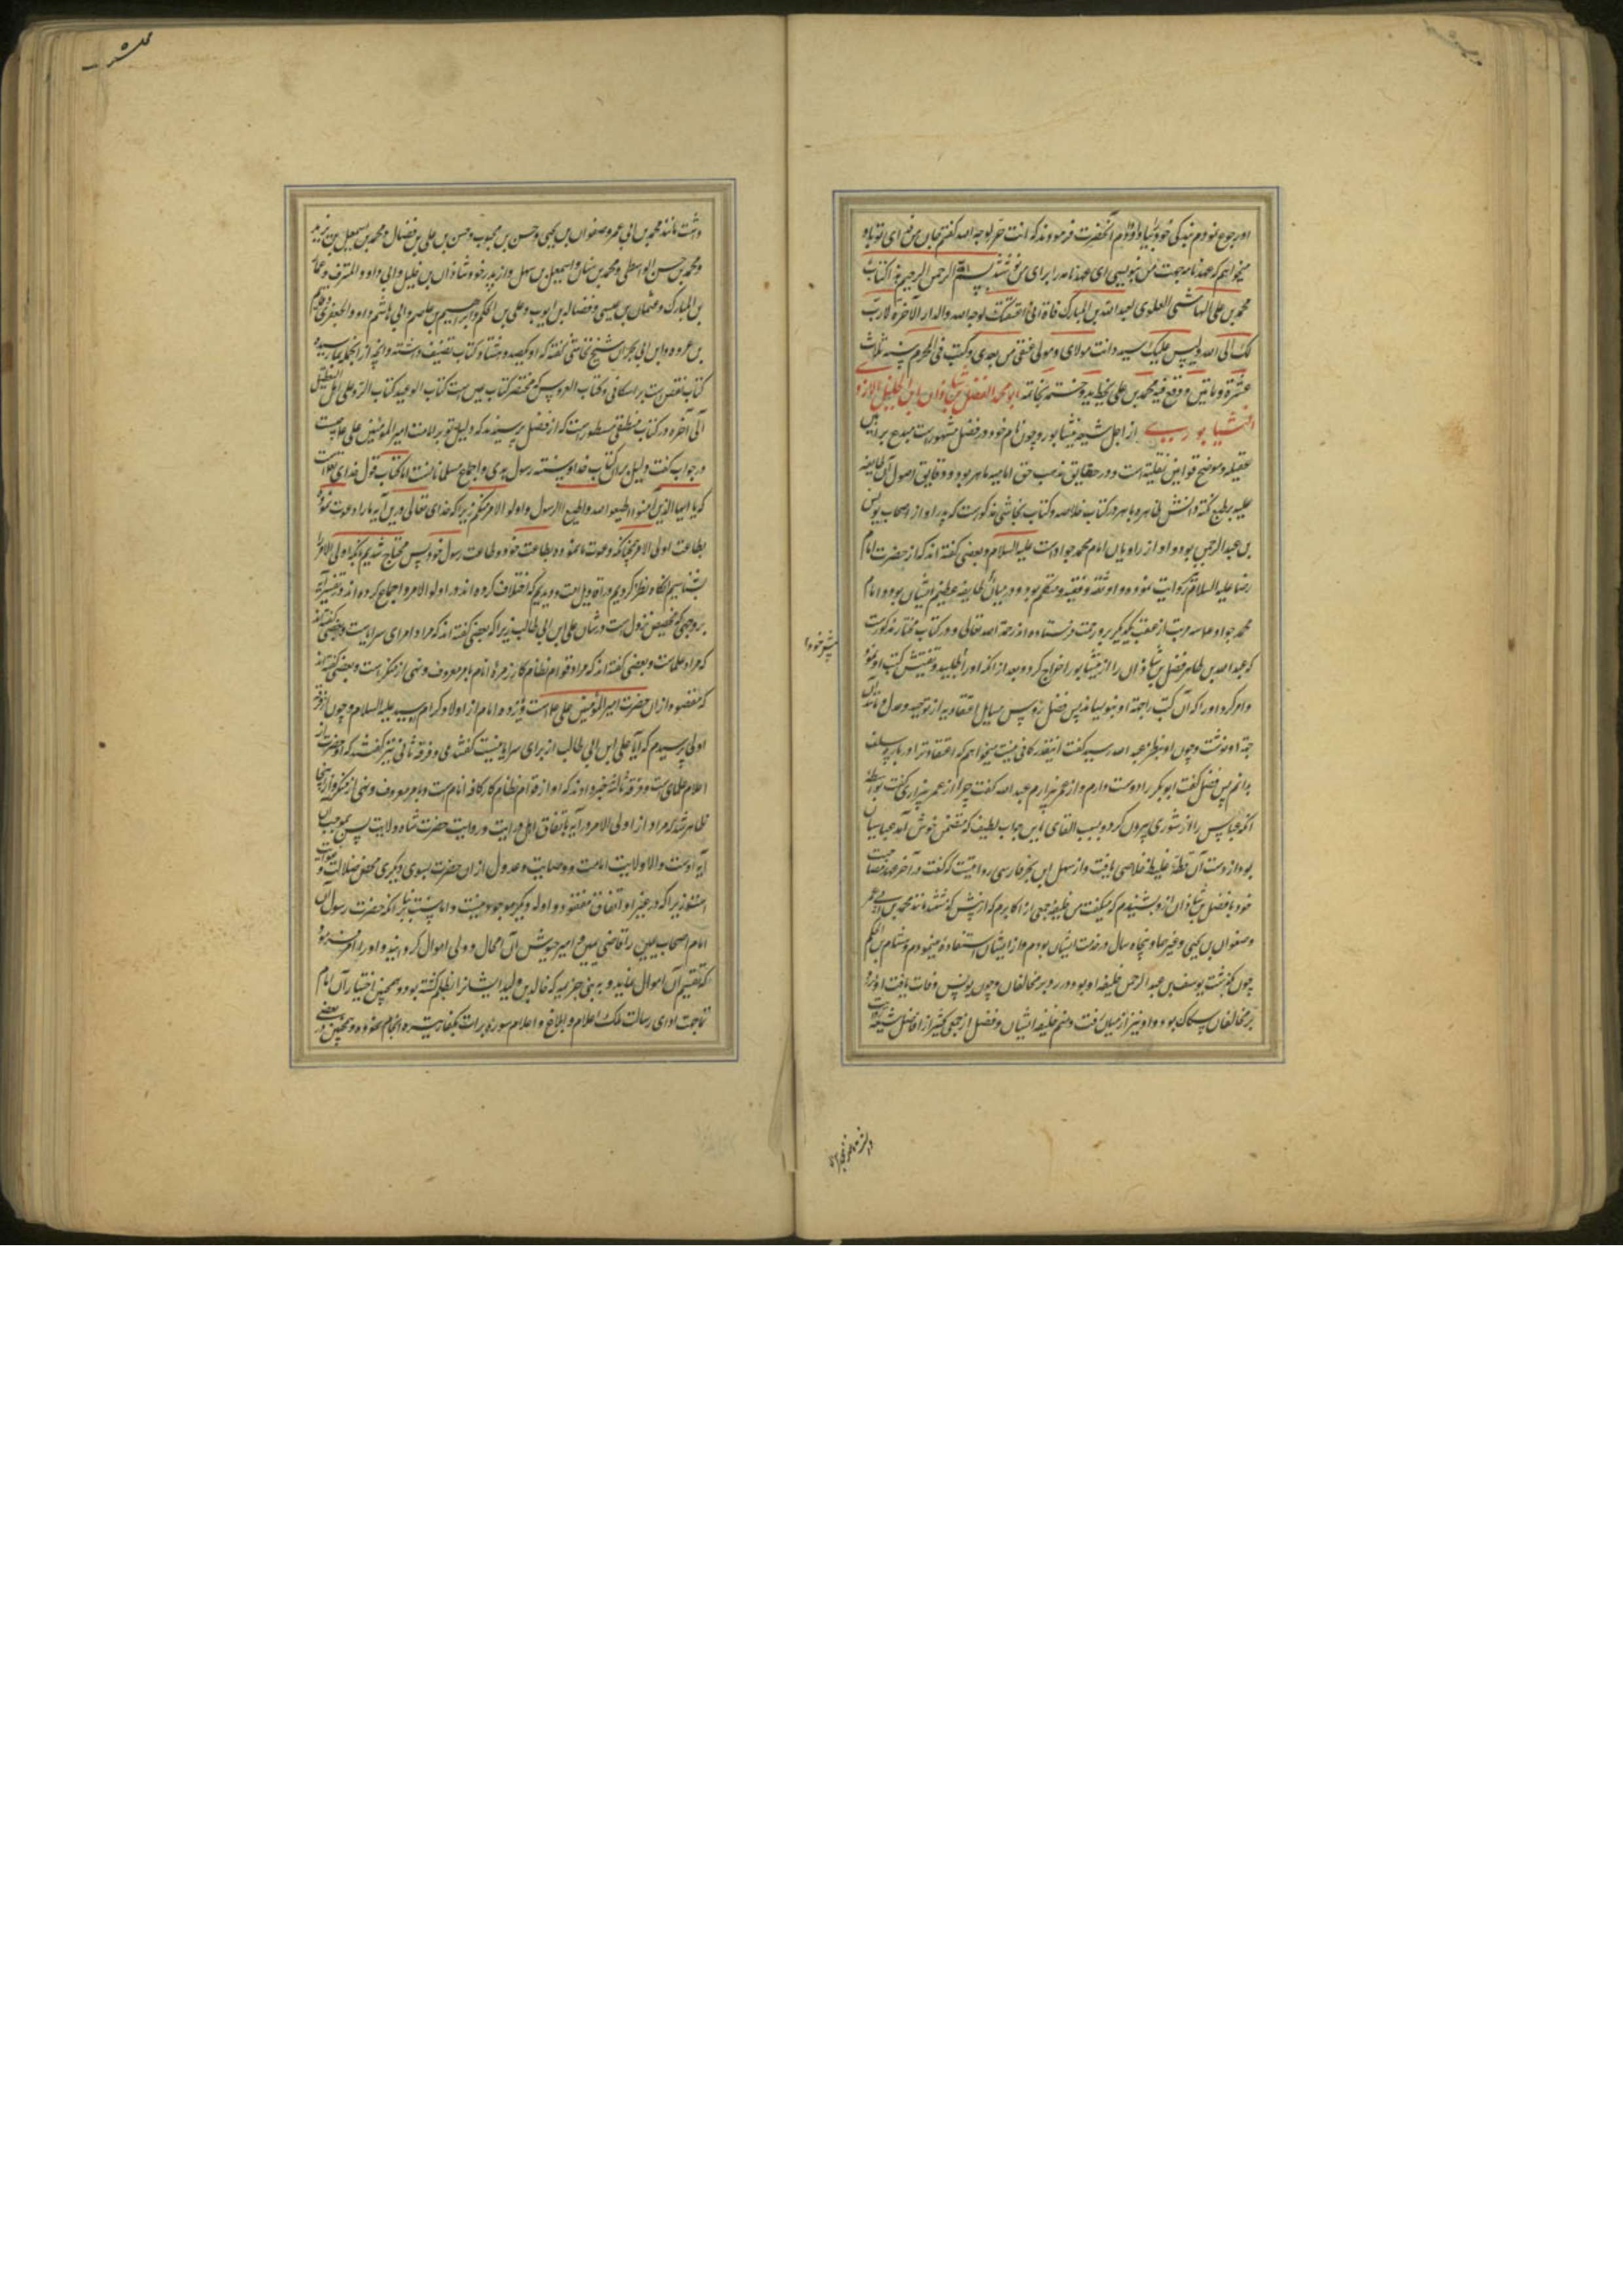 او رجوع نمودم بندگی خود را بیاد او دادم آنحضرت فرمودند که انت حر لوجه الله گفتم
میخواهم که عهد نامه جهت من بنویسی ای عهدنامه را برای من نوشتند بسم الله الرحمن الرحیم هذا کتاب
محمد بن علی الهاشمی العلوی لعبد الله بن المبارک فتاه انی اعتقتک لوجه الله والدار الآخرة لا رب
لک الا الله ولیس علیک سید وانت مولای ومولی عقبی من بعدی وکتب فی المحرم سنه ثلاث
عشرة ومأتین ووقع فیه محمد بن علی بخط یده وختمه بخاتمه ابو محمد الفضل بن شاذان بن الخلیل الازدی
النیشابوری از اجل شیعه نیشابور و چون نام خود در فضل مشهور است مبدع براهین
عقلیه و موضح قوانین نقلیه است و در حقایق مذهب حق امامیه ماهر بود و دقایق اصول آن طایفه
علیه بر طبع نکته دانش ظاهر و باهر در کتاب خلاصه و کتاب نجاشی مذکورست که پدر او از اصحاب یونس
بن عبد الرحمن بود و او از راویان امام محمد جواد است علیه السلام و بعضی گفته اند که از حضرت امام
رضا علیه السلام نیز روایت نموده و او ثقه و فقیه و متکلم بود و در میان طایفه عظیم الشان بود و امام
محمد جواد علیه السلام مرتب از عقب یکدیگر بر او رحمت فرستاده اند رحمة الله تعالی و در کتاب مختار مذکورست
که عبد الله بن طاهر فضل بن شاذان را از نیشابور اخراج کرد و بعد از آنکه او را طلبید و تفتیش کتب او نمود
و امر کرد او را که آن کتب را جهة او بنویسد پس فضل رؤس مسایل اعتقادیه از توحید و عدل و مانند آن
جهة او نوشت و چون او بنظر عبد الله رسید گفت اینقدر کافی نیست میخواهم که اعتقاد ترا در باره سلف
بدانم پس فضل گفت ابو بکر را دوست دارم و از عمر بیزارم عبد الله گفت چرا از عمر بیزاری گفت بواسطه
آنکه عباس را از شوری بیرون کرد و بسبب القای این جواب لطیف که متضمن خوش آمد عباسیان
بود از دست آن فظ غلیظ خلاصی یافت و از سهل بن بحر فارسی روایتست که گفت در آخر عهد
خود با فضل بن شاذان از و شنیدم که میگفت من خلیفه جمعی از اکابرم که از پیش گذشتند مانند محمد بن ابی عمیر
و صفوان بن یحیی و غیرهما و پنجاه سال در خدمت ایشان بودم و از ایشان استفاده مینمودم و هشام بن الحکم
چون گذشت یونس بن عبد الرحمن خلیفه او بود در رد بر مخالفان و چون یونس وفات یافت او نبود
بر مخالفان سکاک بود و او نیز از میان رفت و منم خلیفه ایشان و فضل از جمعی کثیر از افاضل شیعه
پیش خود
داشت مانند محمد بن ابی عمیر و صفوان بن یحیی و حسن بن محبوب و حسن بن علی بن فضال و محمد بن اسمعیل بن بزیع
و محمد بن حسن الواسطی و محمد بن سنان و اسمعیل بن سهل و از پدر خود شاذان بن خلیل و ابی داود المسترق و عمار
بن المبارک و عثمان بن عیسی و فضاله بن ایوب و علی بن الحکم و ابراهیم بن عاصم و ابی هاشم داود الجعفری و قاسم
بن عروه و ابن ابی نجران شیخ نجاشی گفته که او یکصد و هشتاد کتاب تصنیف داشته و آنچه از آنجمله بما رسیده
کتاب نقض است بر اسکافی و کتاب العروس که مختصر کتاب کتاب الوعید کتاب الرد علی اهل التعطیل
الی آخره در کتاب مسطور است که از فضل پرسیدند که دلیل تو بر امامت امیر المؤمنین علی علیه السلام چیست
در جواب گفت دلیل بر آن کتاب خدا و سنت رسول هدی و اجماع مسلمانانست اما کتاب قول خدای تعالی است
که یا ایها الذین آمنوا اطیعوا الله واطیعوا الرسول واولوا الامر منکم زیرا که خدای تعالی درین آیه ما را دعوت نموده
بطاعت اولی الامر چنانکه دعوت ما نموده بطاعت خود و طاعت رسول خود پس محتاج شدیم بآنکه اولی الامر را
بشناسیم آنگاه نظر کردیم در اقاویل امت و دیدیم که اختلاف کرده اند در اولوا الامر و اجماع کرده اند در تفسیر آیه
بر وجهی که مخصص نزول است در شان علی ابن ابی طالب زیرا که بعضی گفته اند که مراد امرای سرایاست و بعضی گفته اند
که مراد علماست و بعضی گفته اند که مراد قوام نظام کار زمره انام بامر معروف و نهی از منکر است و بعضی گفته اند
که مقصود از آن حضرت امیر المؤمنین علی علیه السلام است و یازده امام از اولاد کرام سید علیه السلام و چون از فرقه
اولی پرسیدم که آیا علی ابن ابی طالب از برای سرایا نیست گفتند بلی و فرقه ثانی نیز گفتند که آنحضرت از
اعلام علمای است و فرقه ثالثه خبر دادند که او از قوام نظام کار کافه انام است و بامر معروف و نهی از منکر و ازینجا
ظاهر شد که مراد از اولی الامر در آیه باتفاق اهل درایت و روایت حضرت شاه ولایت پس بموجب آن
آیه اوست والا ولایت امامت و وصایت و عدول از آن حضرت بسوی دیگری محض ضلالت
زیرا که در غیر او اتفاق مفقود و ادله دیگر موجود نیست و اما سنت بنابر آنکه حضرت رسول آن
امام اصحاب یمین را قاضی یمن و امیر جیوش آن محال و ولی اموال گردانید و او را امر فرمود
که تقسیم آن اموال نماید و به بنی جزیمه که خالد بن ولید ایشانرا بظلم کشته بود و همچنین اختیار آن امام
تا جهت ادای رسالت ملک اعلام و ابلاغ و اعلام سوره برات بکفار